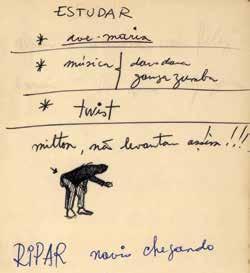 ESTUDAR
* ave-maria
* música {
ganga zumba
* twist
milton, não levantar assim!!!
RIPAR navio chegando